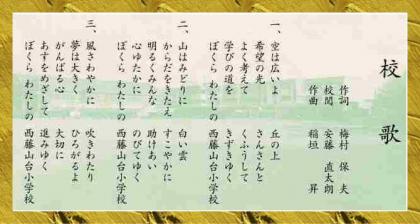 校歌
作詞 梅村 保夫
校閲 安藤 直太朗
作曲 稲垣 昇
一、空は広いよ 丘の上
希望の光 さんさんと
よく考えて くふうして
学びの道を きずきゆく
ぼくら わたしの 西藤山台小学校
二、山はみどりに 白い雲
からだをきたえ すこやかに
明るくみんな 助けあい
心ゆたかに のびてゆく
ぼくら わたしの 西藤山台小学校
三、風さわやかに 吹きわたり
夢は大きく ひろがるよ
がんばる心 大切に
あすをめざして 進みゆく
ぼくら わたしの 西藤山台小学校